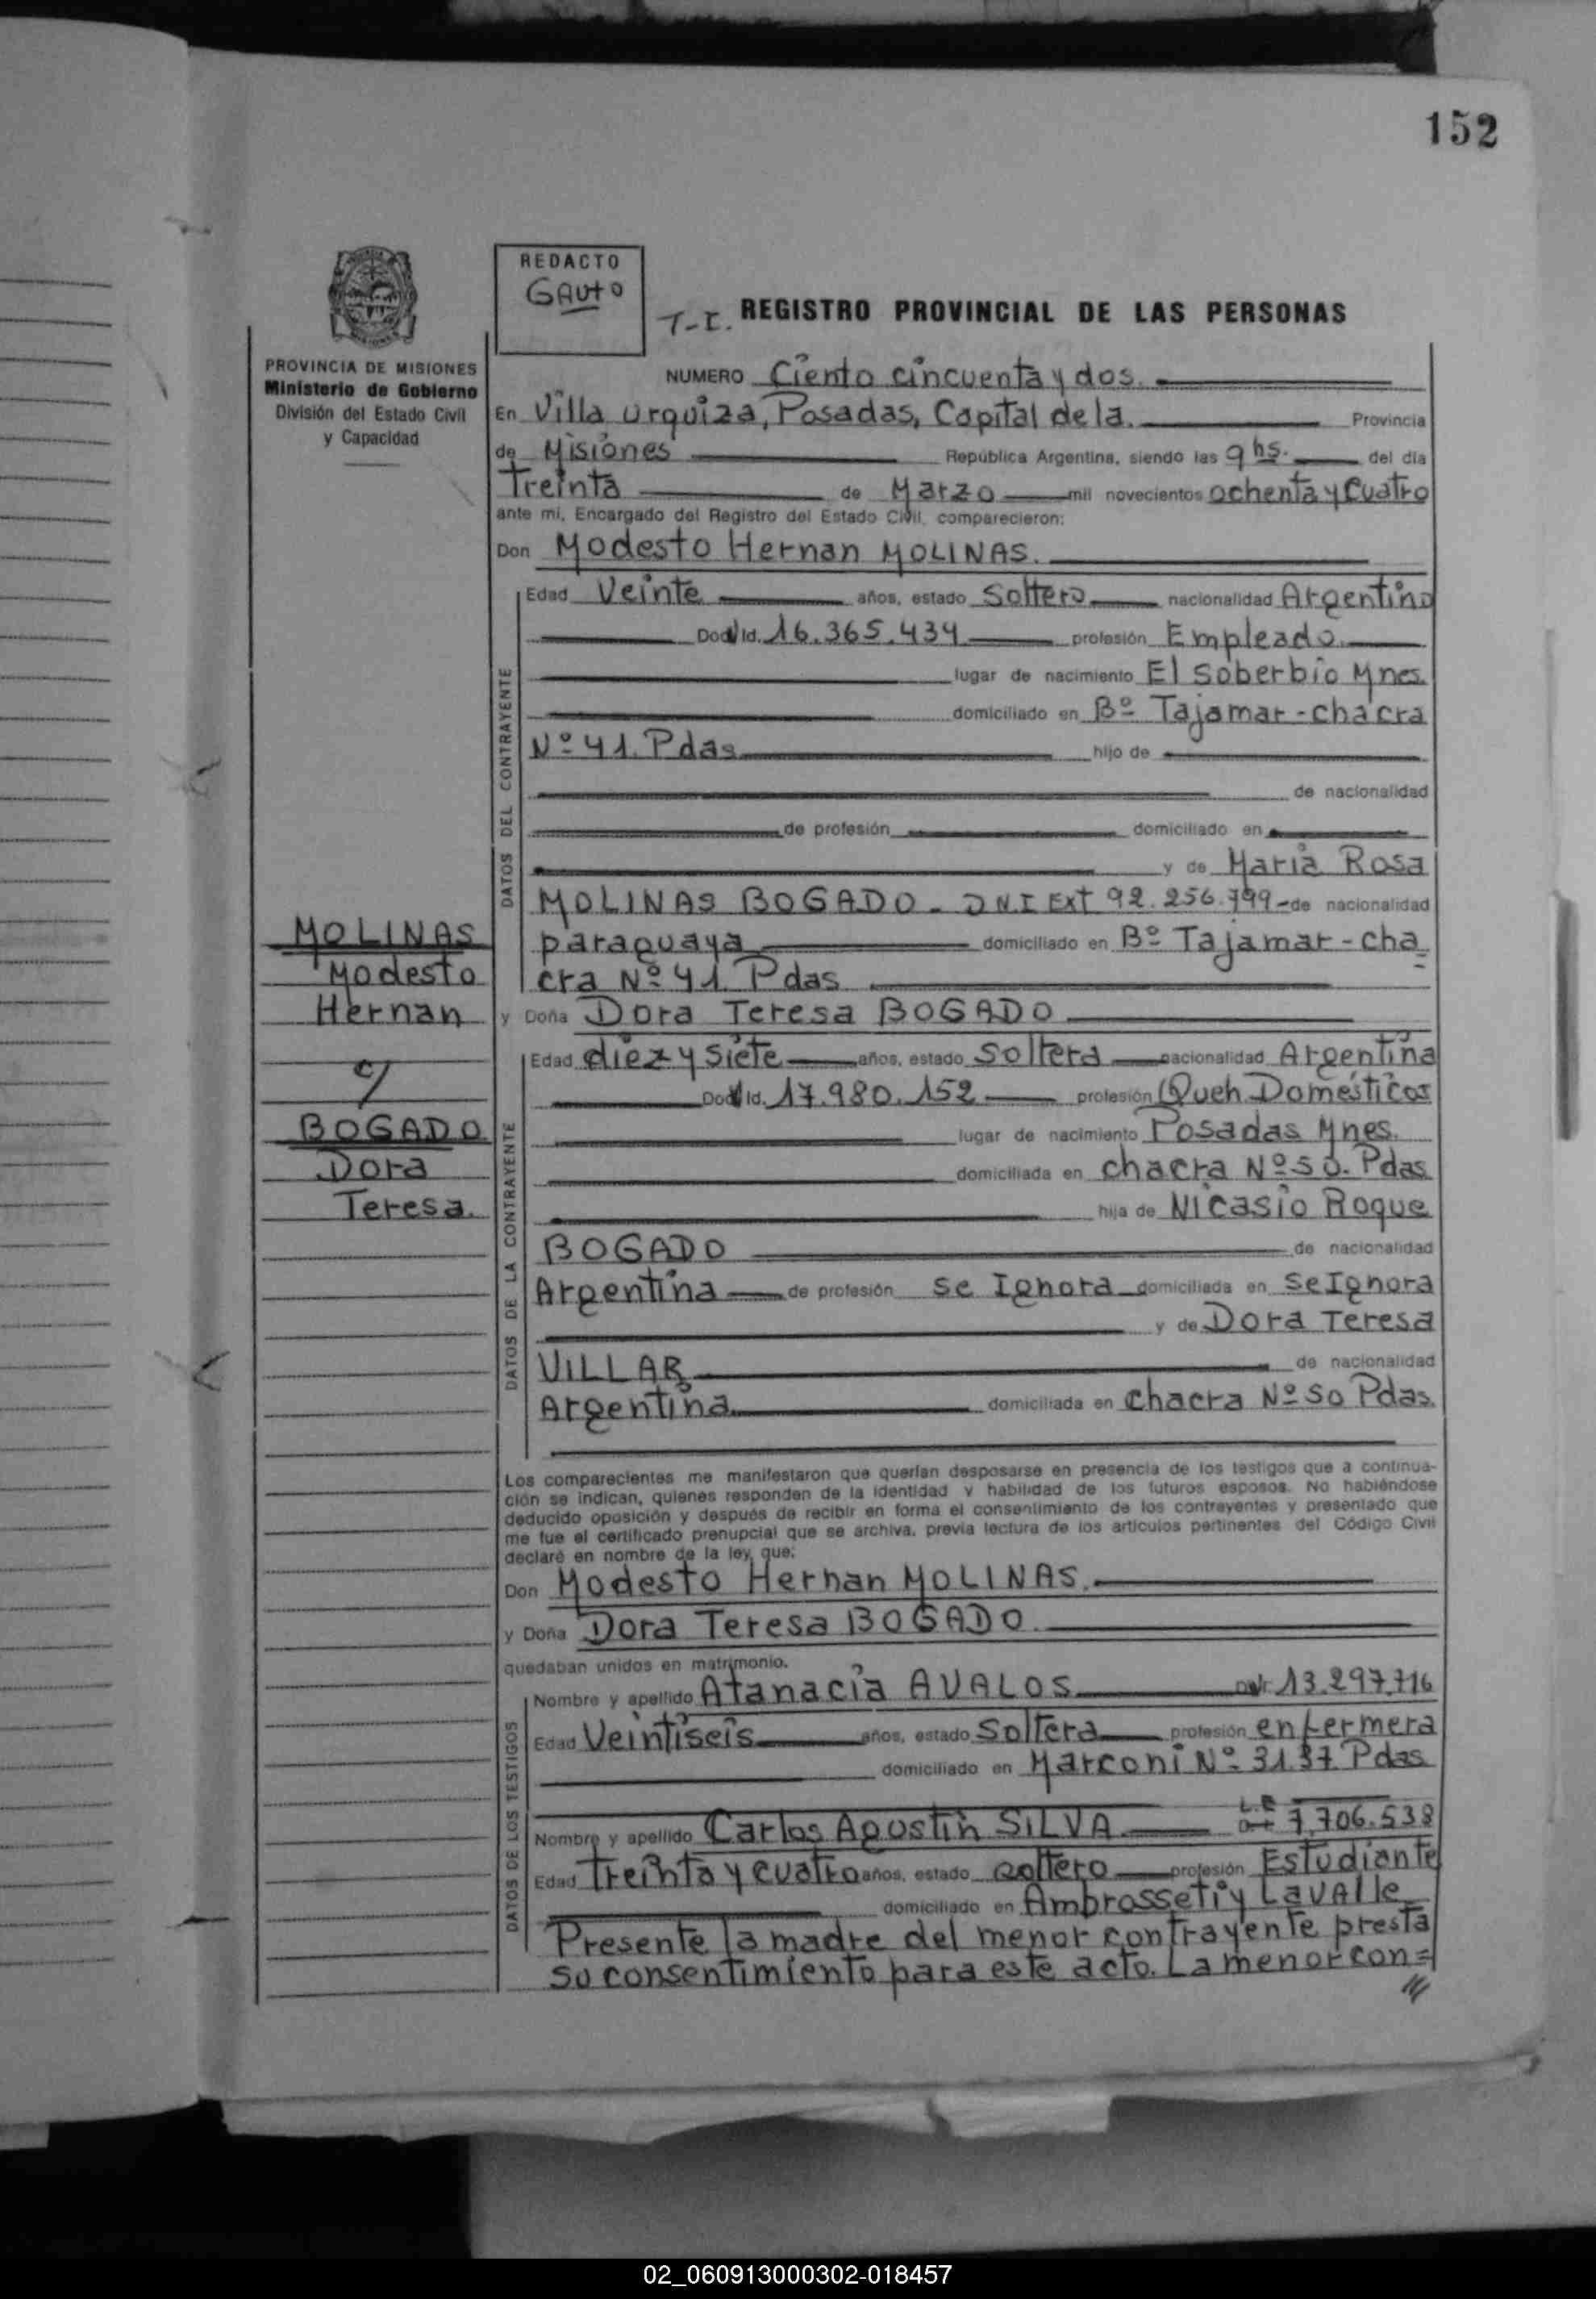 152
REDACTO
GAUTO
T-I. REGISTRO PROVINCIAL DE LAS PERSONAS
PROVINCIA DE MISIONES
Ministerio de Gobierno
División del Estado Civil
y Capacidad
NUMERO Ciento cincuenta y dos.
En Villa urquiza, Posadas, Capital de la. Provincia
de Misiones República Argentina, siendo las 9 hs. del día
Treinta de Marzo mil novecientos ochenta y Cuatro
ante mi, Encargado del Registro del Estado Civil, comparecieron:
Don Modesto Hernan MOLINAS.
DATOS DEL CONTRAYENTE
Edad Veinte años, estado Soltero nacionalidad Argentino
Id. 16.365.434 profesión Empleado.
lugar de nacimiento El Soberbio Mnes.
domiciliado en Bº Tajamar - chacra
Nº 41. Pdas hijo de
de nacionalidad
de profesión domiciliado en
y de Maria Rosa
MOLINAS BOGADO - D.N.I Ext 92.256.799 - de nacionalidad
paraguaya domiciliado en Bº Tajamar - cha
cra Nº 41. Pdas
MOLINAS
Modesto
Hernan
c/
BOGADO
Dora
Teresa.
y Doña Dora Teresa BOGADO
DATOS DE LA CONTRAYENTE
Edad diez y siete años, estado Soltera nacionalidad Argentina
Id. 17.980.152 profesión Queh. Domésticos
lugar de nacimiento Posadas Mnes.
domiciliada en chacra Nº 50. Pdas
hija de Nicasio Roque
BOGADO de nacionalidad
Argentina de profesión se Ignora domiciliada en se Ignora
y de Dora Teresa
VILLAR de nacionalidad
Argentina domiciliada en chacra Nº 50 Pdas.
Los comparecientes me manifestaron que querían desposarse en presencia de los testigos que a continua-
ción se indican, quienes responden de la identidad y habilidad de los futuros esposos. No habiéndose
deducido oposición y después de recibir en forma el consentimiento de los contrayentes y presentado que
me fue el certificado prenupcial que se archiva, previa lectura de los artículos pertinentes del Código Civil
declaré en nombre de la ley, que:
Don Modesto Hernan MOLINAS.
y Doña Dora Teresa BOGADO.
quedaban unidos en matrimonio.
DATOS DE LOS TESTIGOS
Nombre y apellido Atanacia AVALOS 13.297.716
Edad Veintiseis años, estado Soltera profesión enfermera
domiciliado en Marconi Nº 3137. Pdas
Nombre y apellido Carlos Agustin SILVA L.E 7.706.538
Edad Treinta y cuatro años, estado soltero profesión Estudiante
domiciliado en Ambrosseti y Lavalle
Presente la madre del menor contrayente presta
su consentimiento para este acto. La menor con=
02_060913000302-018457